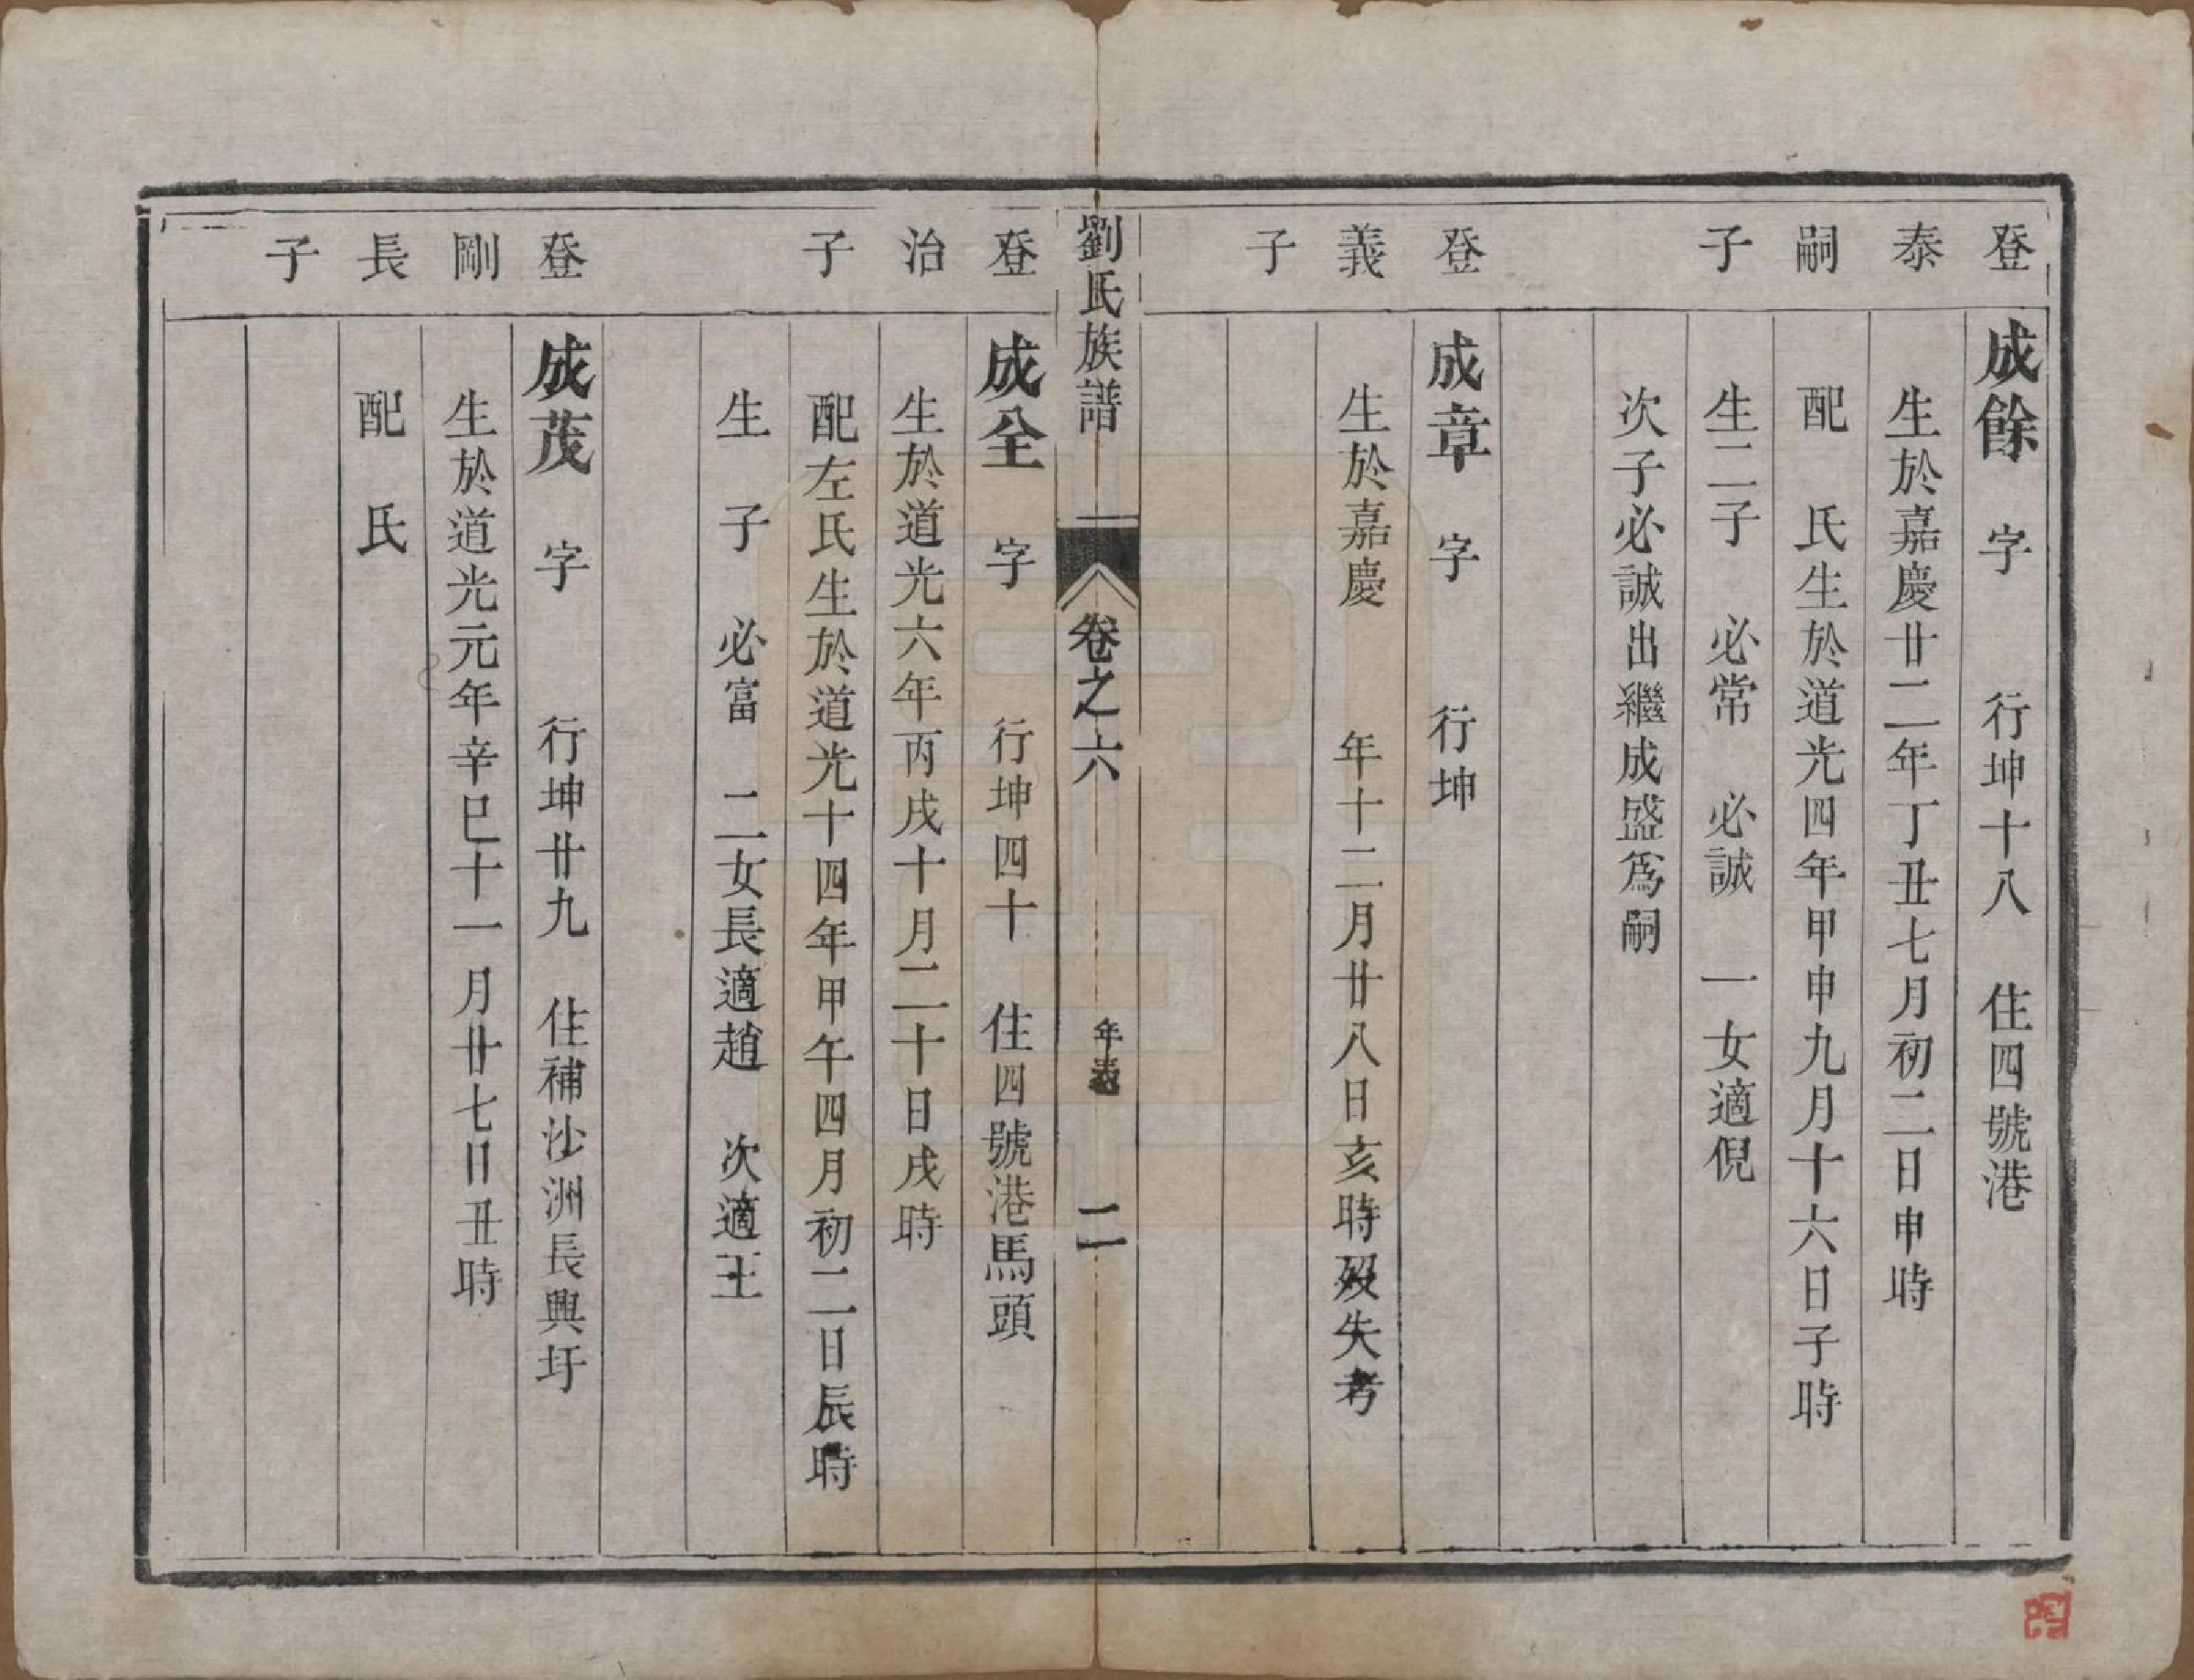 登泰嗣子
成餘 字 行坤十八 住四號港
生於嘉慶廿二年丁丑七月初二日申時
配 氏生於道光四年甲申九月十六日子時
生二子 必常 必誠 一女適倪
次子必誠出繼成盛爲嗣
登義子
成章 字 行坤
生於嘉慶 年十二月廿八日亥時歿失考
劉氏族譜 卷之六 年表 二
登治子
成全 字 行坤四十 住四號港馬頭
生於道光六年丙戌十月二十日戌時
配左氏生於道光十四年甲午四月初二日辰時
生 子 必富 二女長適趙 次適王
登剛長子
成茂 字 行坤廿九 住補沙洲長興圩
生於道光元年辛巳十一月廿七日丑時
配 氏